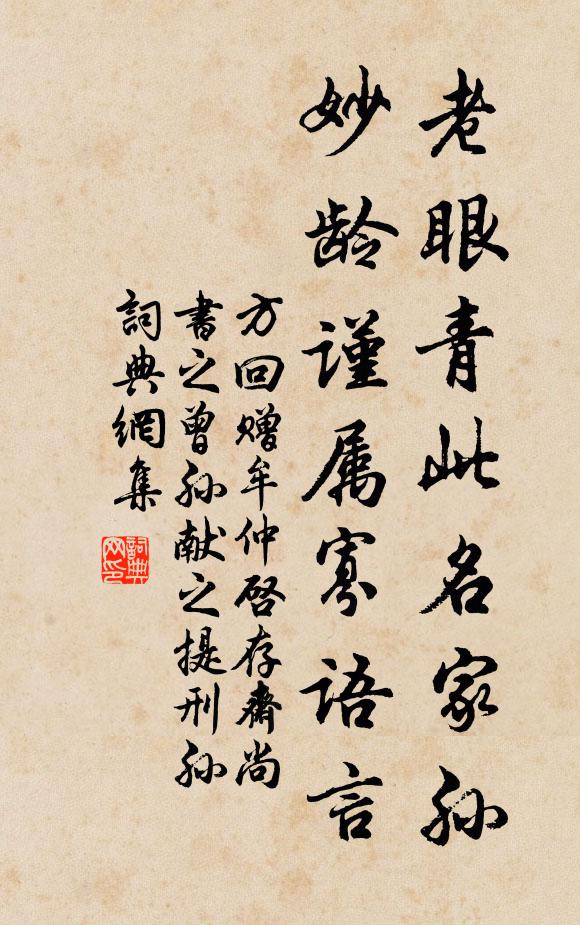 老眼青此名家孙
妙龄谨厲寡语言
方回赠牟仲启存齋尚
書之曾孙献之提刑孙
詞典網集
詞典网印